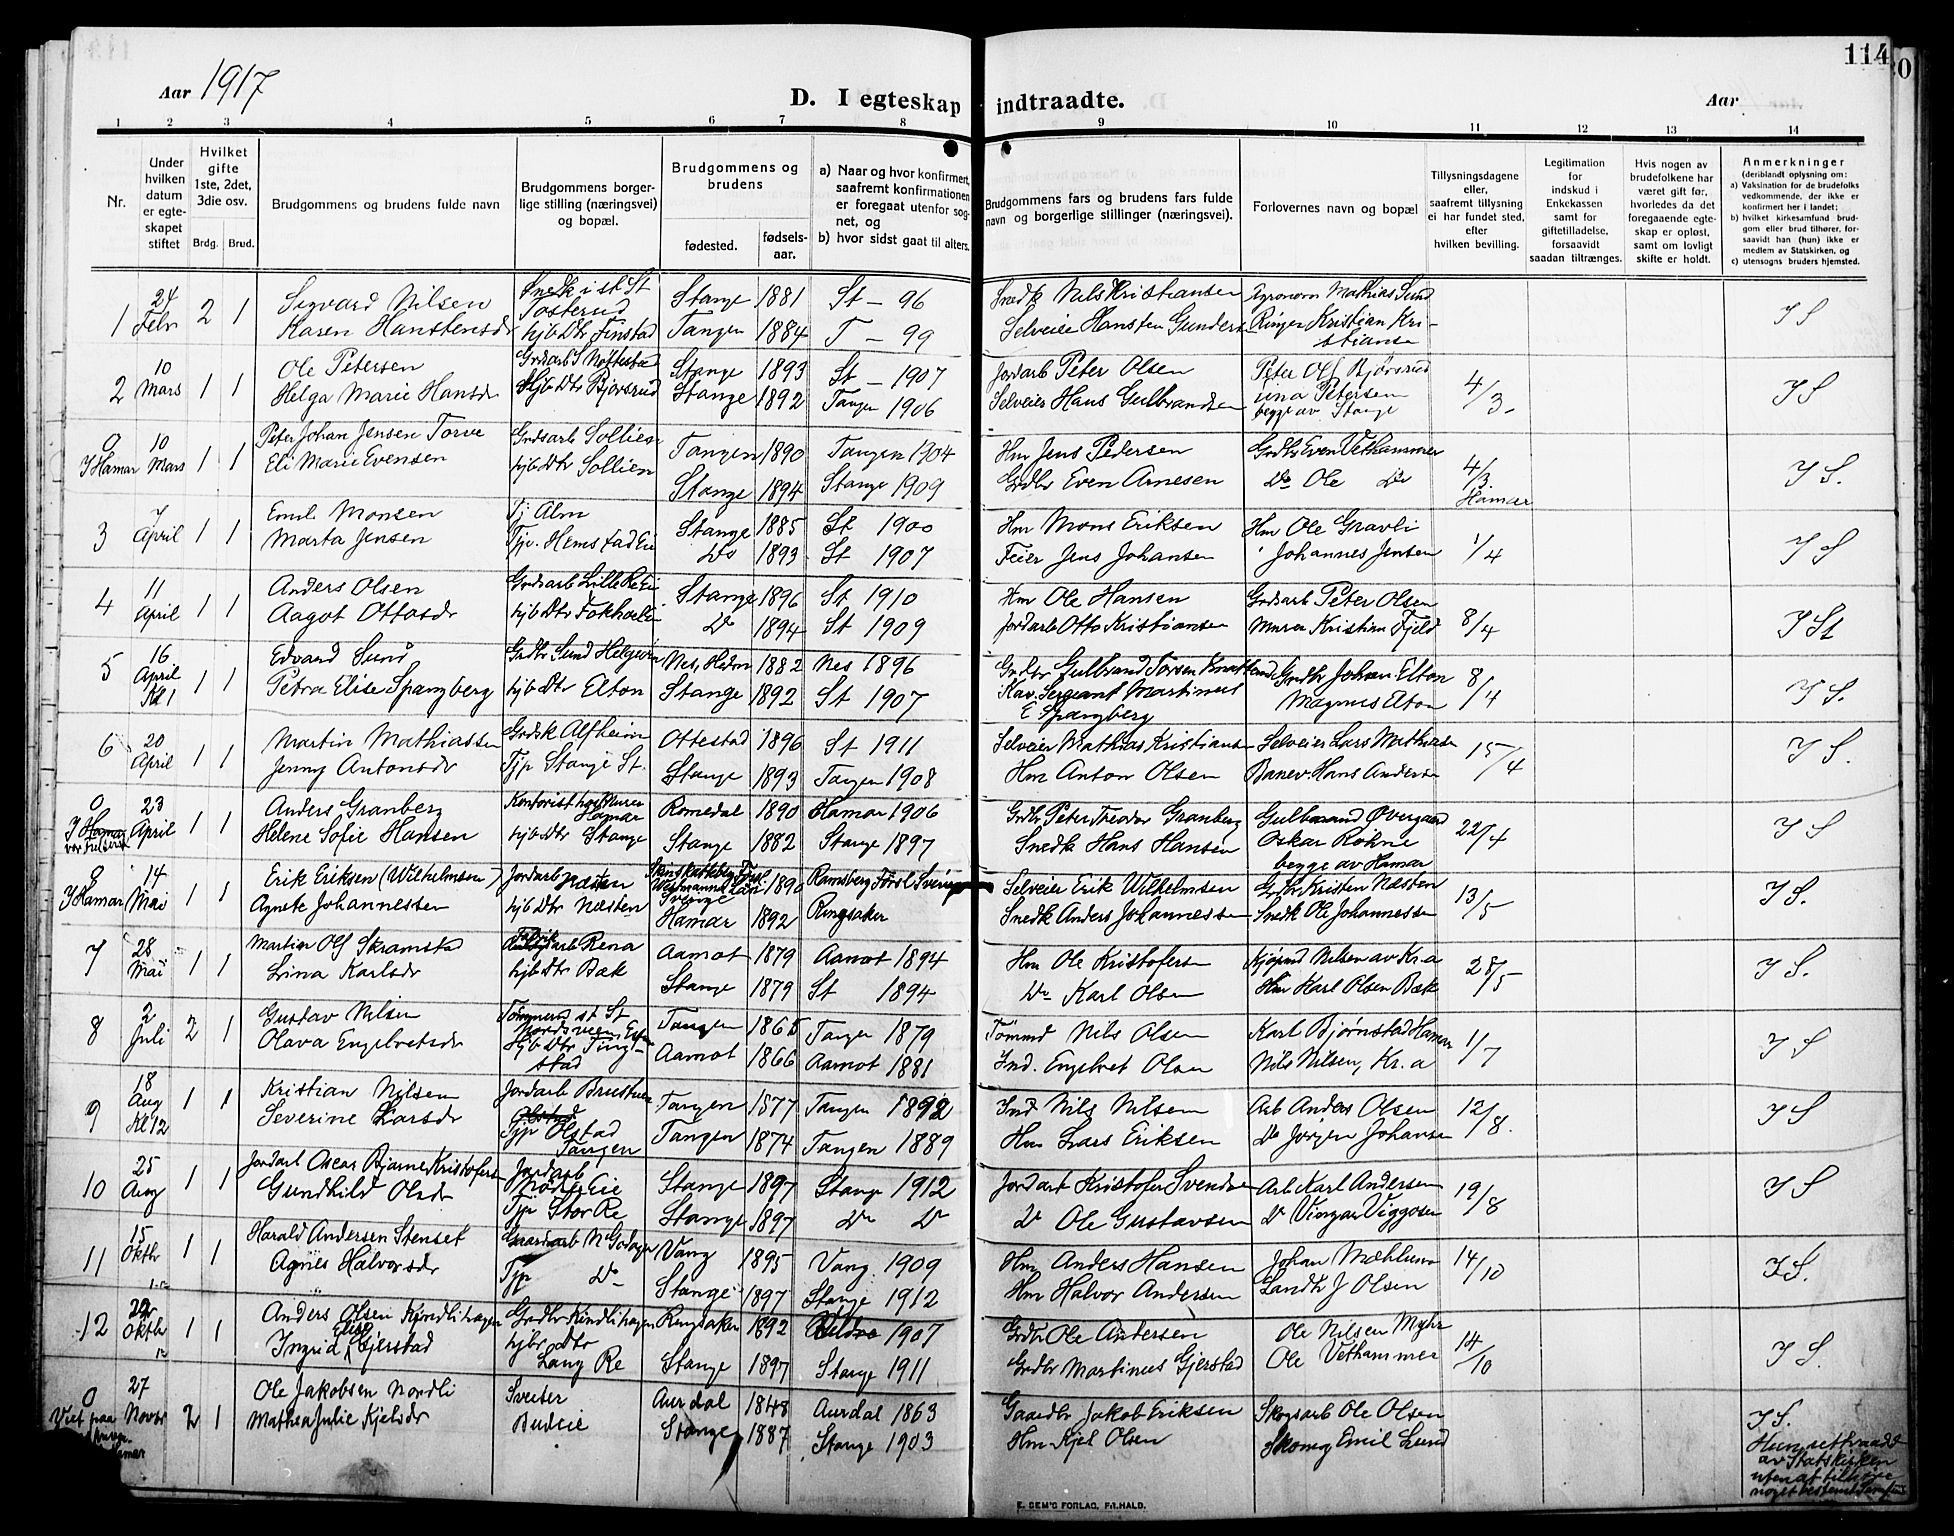 114
Aar 1917
D. I egteskap indtraadte.
Aar
1 2 3 4 5 6 7 8 9 10 11 12 13 14
Nr.
Under hvilken datum er egte-skapet stiftet
Hvilket gifte 1ste, 2det, 3die osv.
Brdg. Brud.
Brudgommens og brudens fulde navn
Brudgommens borger-lige stilling (næringsvei) og bopæl.
Brudgommens og brudens
fødested.
fødsels-aar.
a) Naar og hvor konfirmert, saafremt konfirmationen er foregaat utenfor sog-net, og
b) hvor sidst gaat til alters.
Brudgommens fars og brudens fars fulde navn og borgerlige stillinger (næringsvei).
Forlovernes navn og bopæl
Tillysningsdagene eller, saafremt tillysning ei har fundet sted, efter hvilken bevilling.
Legitimation for indskud i Enkekassen samt for giftetilladelse, forsaavidt saadan tiltrænges.
Hvis nogen av brudefolkene har været gift før, hvorledes da det foregaaende egte-skap er opløst, samt om lovligt skifte er holdt.
Anmerkninger (deriblandt oplysning om:
a) Vaksination for de brudefolks vedkommende, der ikke er konfirmert her i landet;
b) hvilket kirkesamfund brud-gom eller brud tilhører, for-saavidt han (hun) ikke er medlem av Statskirken, og
c) utensogns bruders hjemsted.
1 24 Febr 2 1 Sigvard Nilsen Snedk i st St Tosterud Stange 1881 St - 96 Snedk Nils Kristiansen Agronom Mathias Sund I S
Karen Hanstensdr hjb Dtr Finstad Tangen 1884 T - 99 Selveier Hansten Gunders Ringer Kristian Kri-stianse
2 10 Mars 1 1 Ole Petersen Grdsarb S Nøttestad Stange 1893 St - 1907 Jordarb Peter Olsen Peter Ols Bjørsrud 4/3. I S
Helga Marie Hansdr Hjb Dtr Bjørsrud Stange 1892 Tangen 1906 Selveier Hans Gulbrandsen Petersen begge av Stange
0 I Hamar 10 Mars 1 1 Peter Johan Jensen Torve Grdsarb Sollien Tangen 1890 Tangen 1904 Hm Jens Pedersen Grdbr Even Vethammer 4/3. Hamar I S.
Eli Marie Evensen hjb Dtr Sollien Stange 1894 Stange 1909 Grdbr Even Arnesen Do Ole Do
3 7 April 1 1 Emil Monsen Tj Alm Stange 1885 St 1900 Hm Mons Eriksen Hm Ole Gravli 1/4 I S
Marta Jensen Tjp. Hemstad Eie Do 1893 St 1907 Feier Jens Johansen " Johannes Jensen
4 11 April 1 1 Anders Olsen Grdsarb Lille Re Eie Stange 1896 St 1910 Hm Ole Hansen Grdsarb Peter Olsen 8/4 I St
Aagot Ottosdr hjb Dtr Fokhol Do 1894 St 1909 Jordarb Otto Kristiansen Murer Kristian Fjeld
5 16 April Kl 1 1 1 Edvard Sund Grdbr Sund Helgøen Nes, Hedm 1882 Nes 1896 Grdbr Gulbrand Torsen Grdbr Johan Elton 8/4 I S.
Petra Elise Spangberg hjb Dtr Elton Stange 1892 St 1907 Kav. Sergeant Martinus E Spangberg Magnus Elton
6 20 April 1 1 Martin Mathiassen Grdsk Alfheim Ottestad 1896 St 1911 Selveier Mathias Kristiansen Selveier Lars Mathisen 15/4 I S.
Jenny Antonsdr Tjp Stange St. Stange 1893 Tangen 1908 Hm Anton Olsen Banev Hans Andersen
0 I Hamar 23 April 1 1 Anders Granberg Kontorist Hamar Romedal 1890 Hamar 1906 Grdbr Peter Theodor Granberg Gulbrand Øvergaard 22/4 I S
Helene Sofie Hansen hjb Dtr Stange Stange 1882 Stange 1897 Snedk Hans Hansen Oskar Rohne begge av Hamar
0 I Hamar 14 Mai 1 1 Erik Eriksen (Wilhelmsen) Jordarb Næsten Sverige 1890 Ramsberg Førsl Sverige Selveier Erik Wilhelmsen Grdbr Kristen Næsten 13/5 I S.
Agnete Johannessen hjb Dtr Næsten Hamar 1892 Ringsaker Snedk Anders Johannessen Snedk Ole Johannessen
7 28 Mai 1 1 Martin Ols Skramsta Rena Aamot 1879 Aamot 1894 Hm Ole Kristofersen Kjøpmd Nilsen av Kr.a 28/5 I S.
Lina Karlsdr hjb Dtr Bæk Stange 1879 St 1894 Do Karl Olsen Hm Karl Olsen Bæk
8 2 Juli 2 1 Gustav Nilsen Tømmermd st St Nordsveen Eie Tangen 1865 Tangen 1879 Tømmd Nils Olsen Karl Bjørnstad Hamar 1/7 I S
Olava Engebretsdr Hjb Dtr Ting-stad Aamot 1866 Aamot 1881 Ind. Engebret Olsen Nils Nilsen, Kr.a
9 18 Aug Kl 12 1 1 Kristian Nilsen Jordarb Tangen 1877 Tangen 1892 Ind Nils Nilsen Arb Anders Olsen 12/8. I S
Severine Larsdr Tjp Olstad Tangen Tangen 1874 Tangen 1889 Hm Lars Eriksen Do Jørgen Johansen
10 25 Aug 1 1 Jordarb Oscar Bjarne Kristofersen Jordarb Eie Stange 1897 Stange 1912 Jordarb Kristofer Svendsen Arb Karl Andersen 19/8 I S
Gundhild Olsdr Tjp Stor Re Stange 1897 Do Do Do Ole Gustavsen Do Viggosen
11 15 Oktbr 1 1 Harald Andersen Stenset Gaardarb N Godager Vang 1895 Vang 1909 Hm Anders Hansen Johan Mæhlum 14/10 I S.
Agnes Halvorsdr Tjp Do Stange 1897 Stange 1912 Hm Halvor Andersen Landbr J Olsen
12 22 Oktbr 1 1 Anders Olsen Kindlihagen Grdbr Kindlihagen Ringsaker 1892 Veldre 1907 Grdbr Ole Andersen Ole Nilsen Myhr 14/10 I S.
Ingrid Elise Gjerstad hjbr dtr Lang Re Stange 1897 Stange 1911 Grdbr Martinus Gjerstad Ole Vethammer
0 Viet paa Hamar 27 Novbr 2 1 Ole Jakobsen Nordli Sveiser Aurdal 1848 Aurdal 1863 Gaardbr Jakob Eriksen Skogsarb Ole Olsen I S.
Mathea Julie Kjelsdr Budeie Stange 1887 Stange 1903 Hm Kjel Olsen Skomg Emil Lund Hun uttraadt av Statskirken uten at tilhøre noget bestemt Samfund
E. SEM'S FORLAG, FR.HALD.